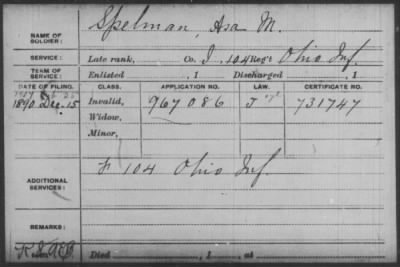 Spelman, Asa M.
NAME OF SOLDIER:
SERVICE: Late rank, Co. I, 104 Reg't Ohio Inf.
TERM OF SERVICE: Enlisted , 1 Discharged , 1
DATE OF FILING. CLASS. APPLICATION NO. LAW. CERTIFICATE NO.
1890 Dec. 15 Invalid, 767086 J 731747
Widow,
Minor,
F 104 Ohio Inf.
ADDITIONAL SERVICES:
REMARKS:
Died , 1 , at